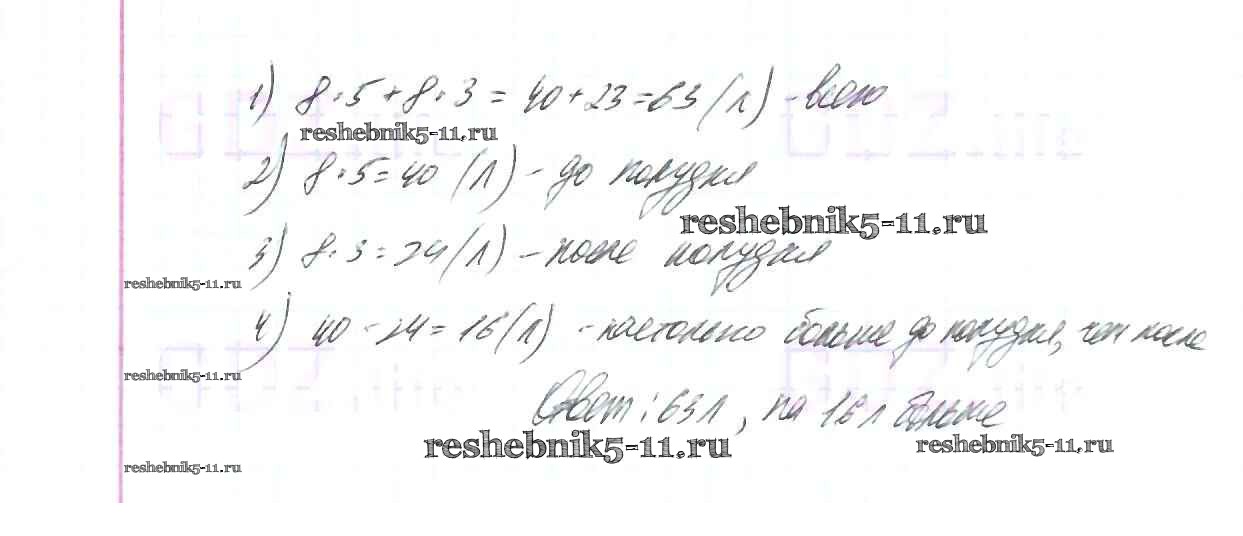 1) 8·5+8·3=40+23=63(л) - всего
reshebnik5-11.ru
2) 8·5=40 (л) - до полудня
reshebnik5-11.ru
3) 8·3=24(л) - после полудня
reshebnik5-11.ru
4) 40-24=16(л) - настолько больше до полудня, чем после
reshebnik5-11.ru
Ответ: 63л, на 16л больше
reshebnik5-11.ru reshebnik5-11.ru
reshebnik5-11.ru